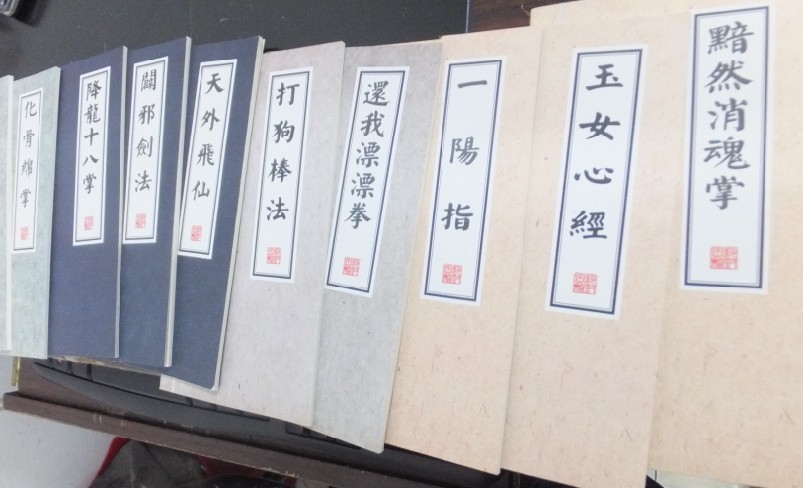 化骨綿掌
降龍十八掌
闢邪劍法
天外飛仙
打狗棒法
還我漂漂拳
一陽指
玉女心經
黯然消魂掌